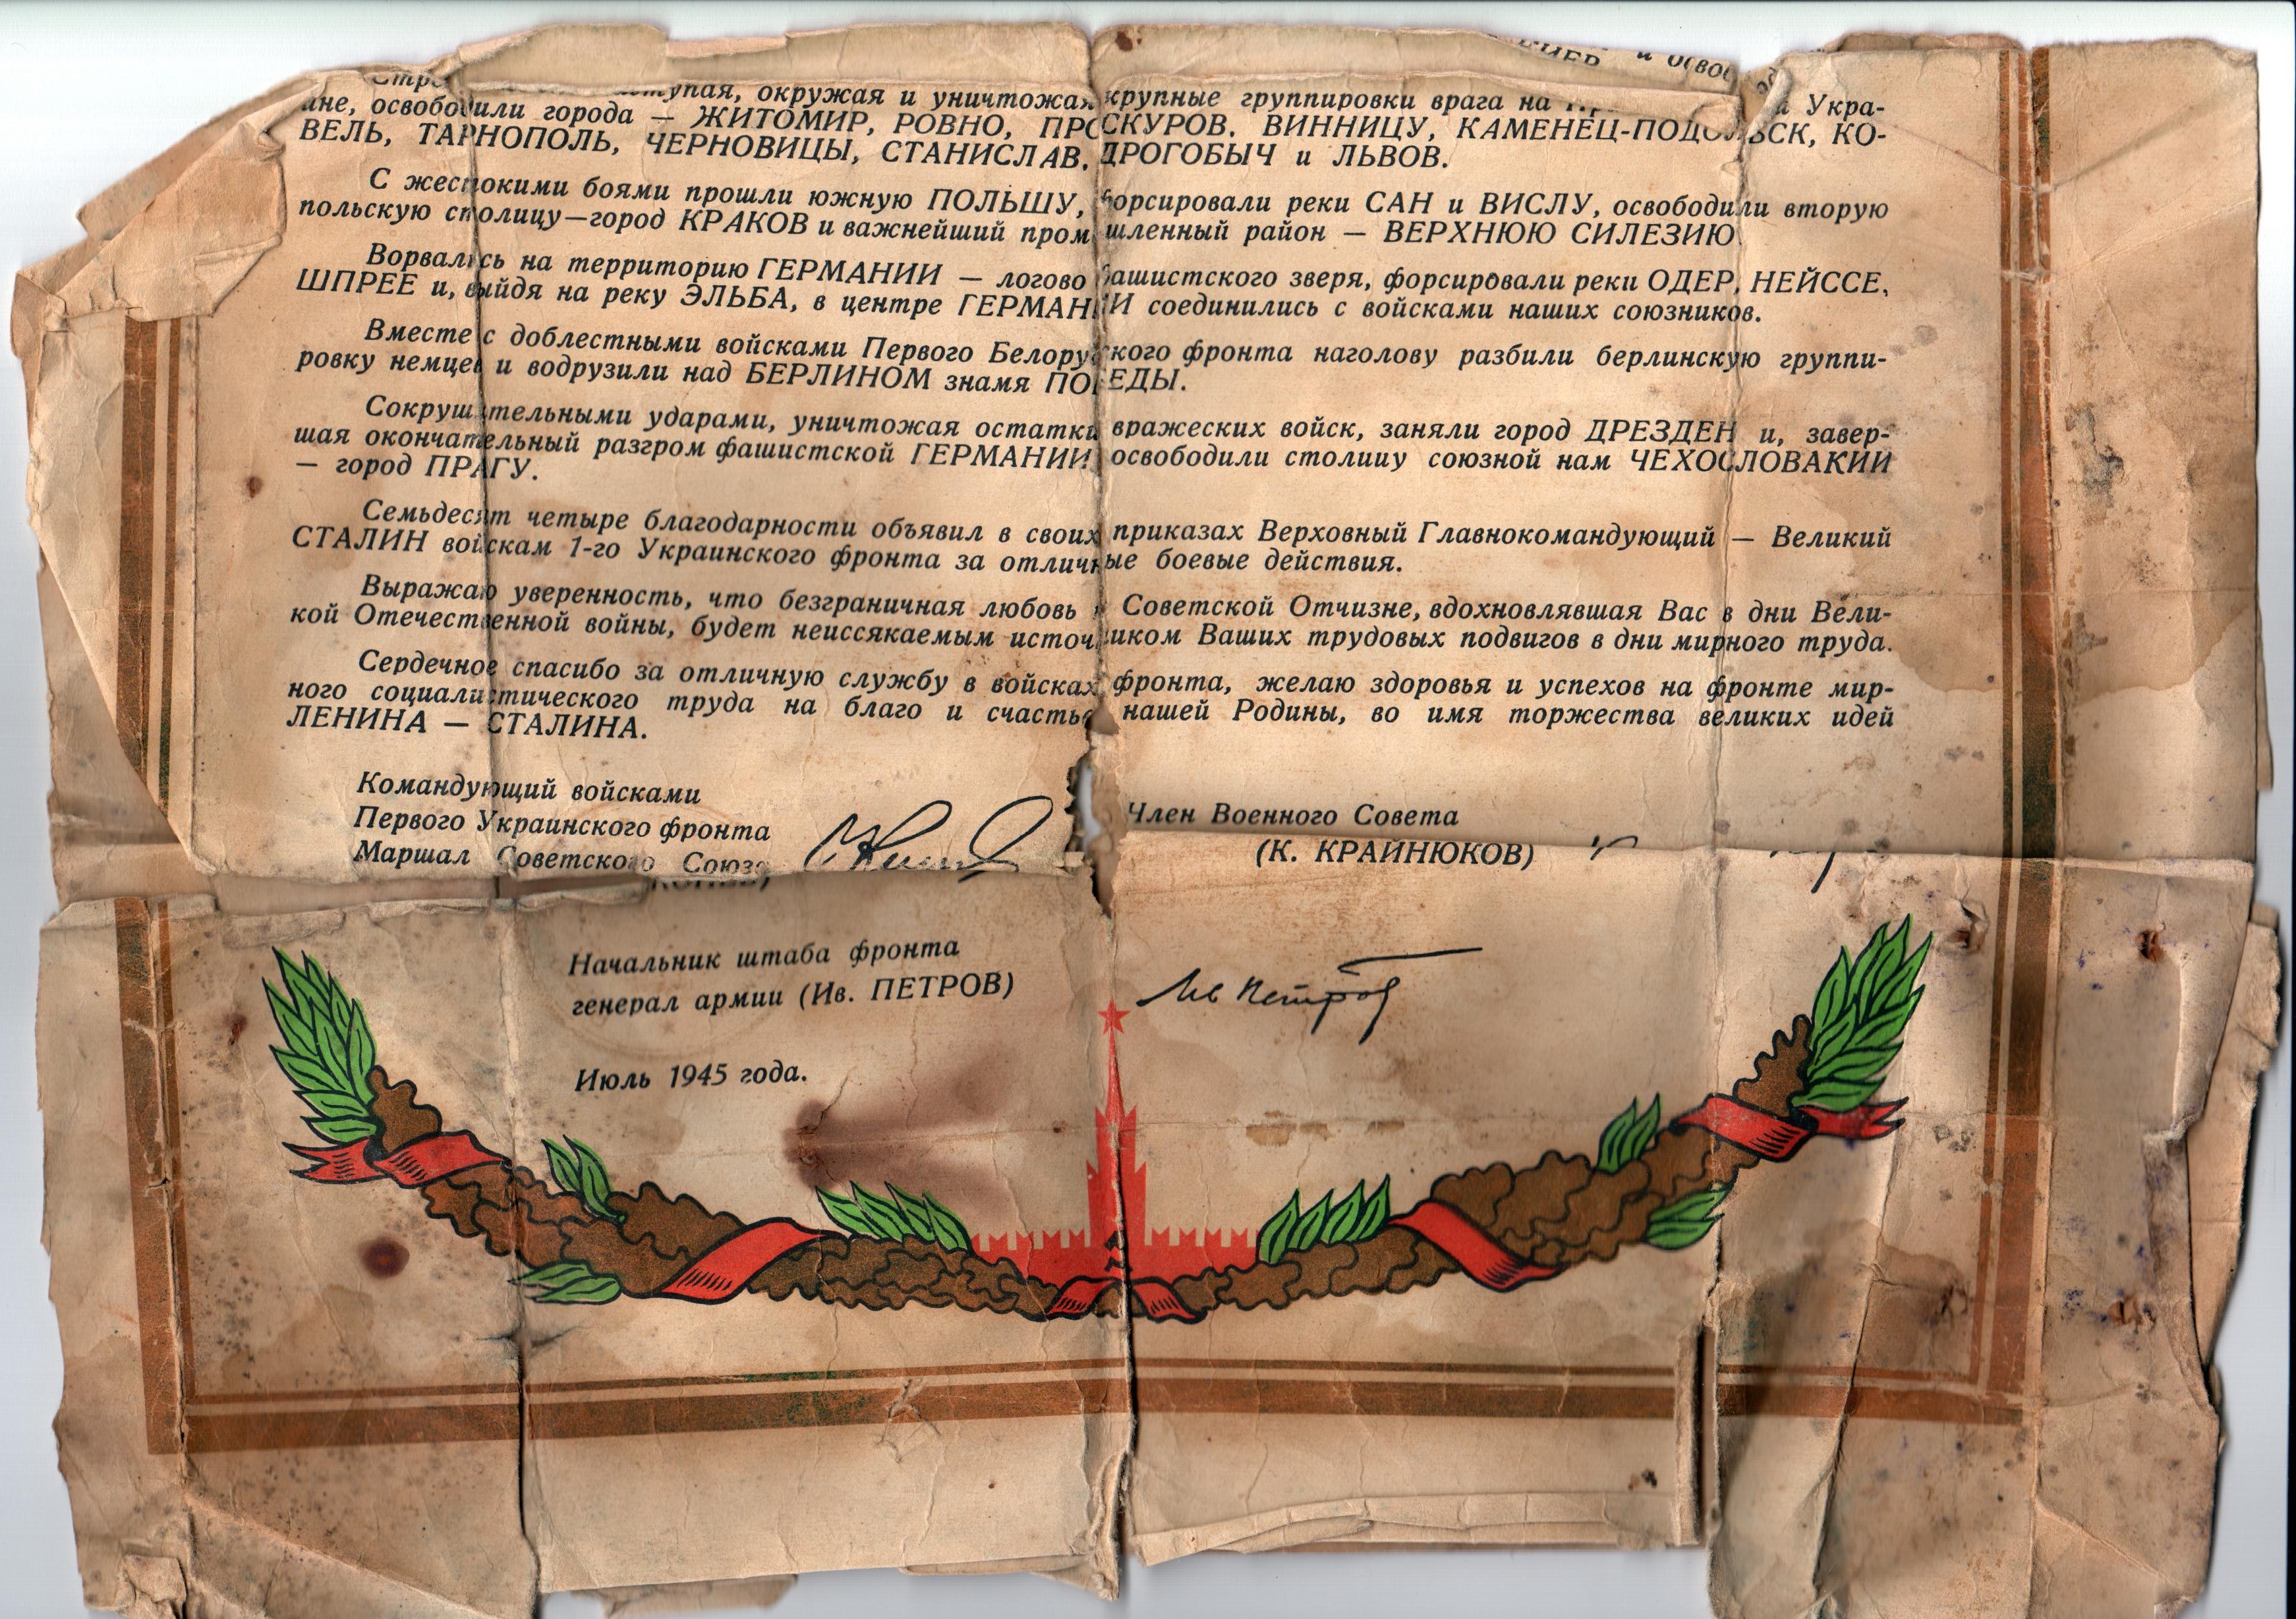 окружая и уничтожая крупные группировки врага на Укра-
ине, освободили города — ЖИТОМИР, РОВНО, ПРОСКУРОВ, ВИННИЦУ, КАМЕНЕЦ-ПОДОЛЬСК, КО-
ВЕЛЬ, ТАРНОПОЛЬ, ЧЕРНОВИЦЫ, СТАНИСЛАВ, ДРОГОБЫЧ и ЛЬВОВ.
С жестокими боями прошли южную ПОЛЬШУ, форсировали реки САН и ВИСЛУ, освободили вторую
польскую столицу—город КРАКОВ и важнейший промышленный район — ВЕРХНЮЮ СИЛЕЗИЮ.
Ворвались на территорию ГЕРМАНИИ — логово фашистского зверя, форсировали реки ОДЕР, НЕЙССЕ,
ШПРЕЕ и, выйдя на реку ЭЛЬБА, в центре ГЕРМАНИИ соединились с войсками наших союзников.
Вместе с доблестными войсками Первого Белорусского фронта наголову разбили берлинскую группи-
ровку немцев и водрузили над БЕРЛИНОМ знамя ПОБЕДЫ.
Сокрушительными ударами, уничтожая остатки вражеских войск, заняли город ДРЕЗДЕН и, завер-
шая окончательный разгром фашистской ГЕРМАНИИ, освободили столицу союзной нам ЧЕХОСЛОВАКИИ
— город ПРАГУ.
Семьдесят четыре благодарности объявил в своих приказах Верховный Главнокомандующий — Великий
СТАЛИН войскам 1-го Украинского фронта за отличные боевые действия.
Выражаю уверенность, что безграничная любовь к Советской Отчизне, вдохновлявшая Вас в дни Вели-
кой Отечественной войны, будет неиссякаемым источником Ваших трудовых подвигов в дни мирного труда.
Сердечное спасибо за отличную службу в войсках фронта, желаю здоровья и успехов на фронте мир-
ного социалистического труда на благо и счастье нашей Родины, во имя торжества великих идей
ЛЕНИНА — СТАЛИНА.
Командующий войсками
Первого Украинского фронта
Маршал Советского Союза
Член Военного Совета
(К. КРАЙНЮКОВ)
Начальник штаба фронта
генерал армии (Ив. ПЕТРОВ)
Ив Петров
Июль 1945 года.